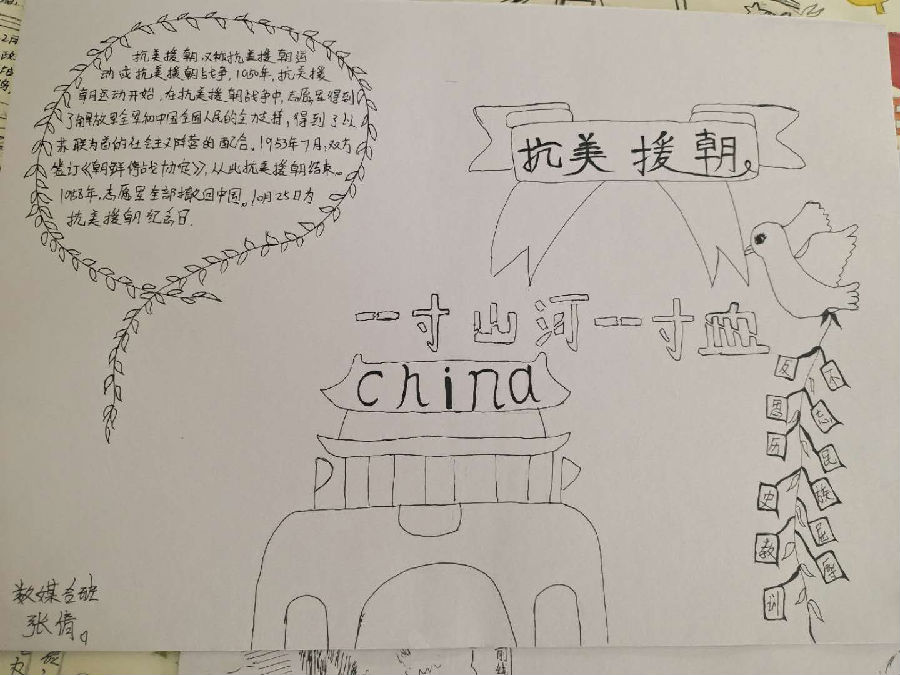 抗美援朝又称抗美援朝运
动或抗美援朝战争,1050年,抗美援
朝运动开始,在抗美援朝战争中,志愿军得到
了解放军全军和中国全国人民的全力支持,得到了以
苏联为首的社会主义阵营的配合。1953年7月,双方
签订《朝鲜停战协定》,从此抗美援朝结束。
1058年,志愿军全部撤回中国。10月25日为
抗美援朝纪念日.
抗美援朝。
一寸山河一寸血
china
反思历史教训
不忘民族屈辱
数媒合班
张倩。